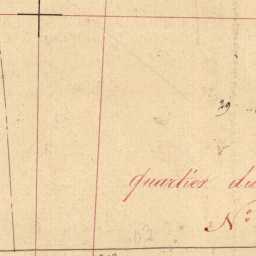 29
quartier du
N.°